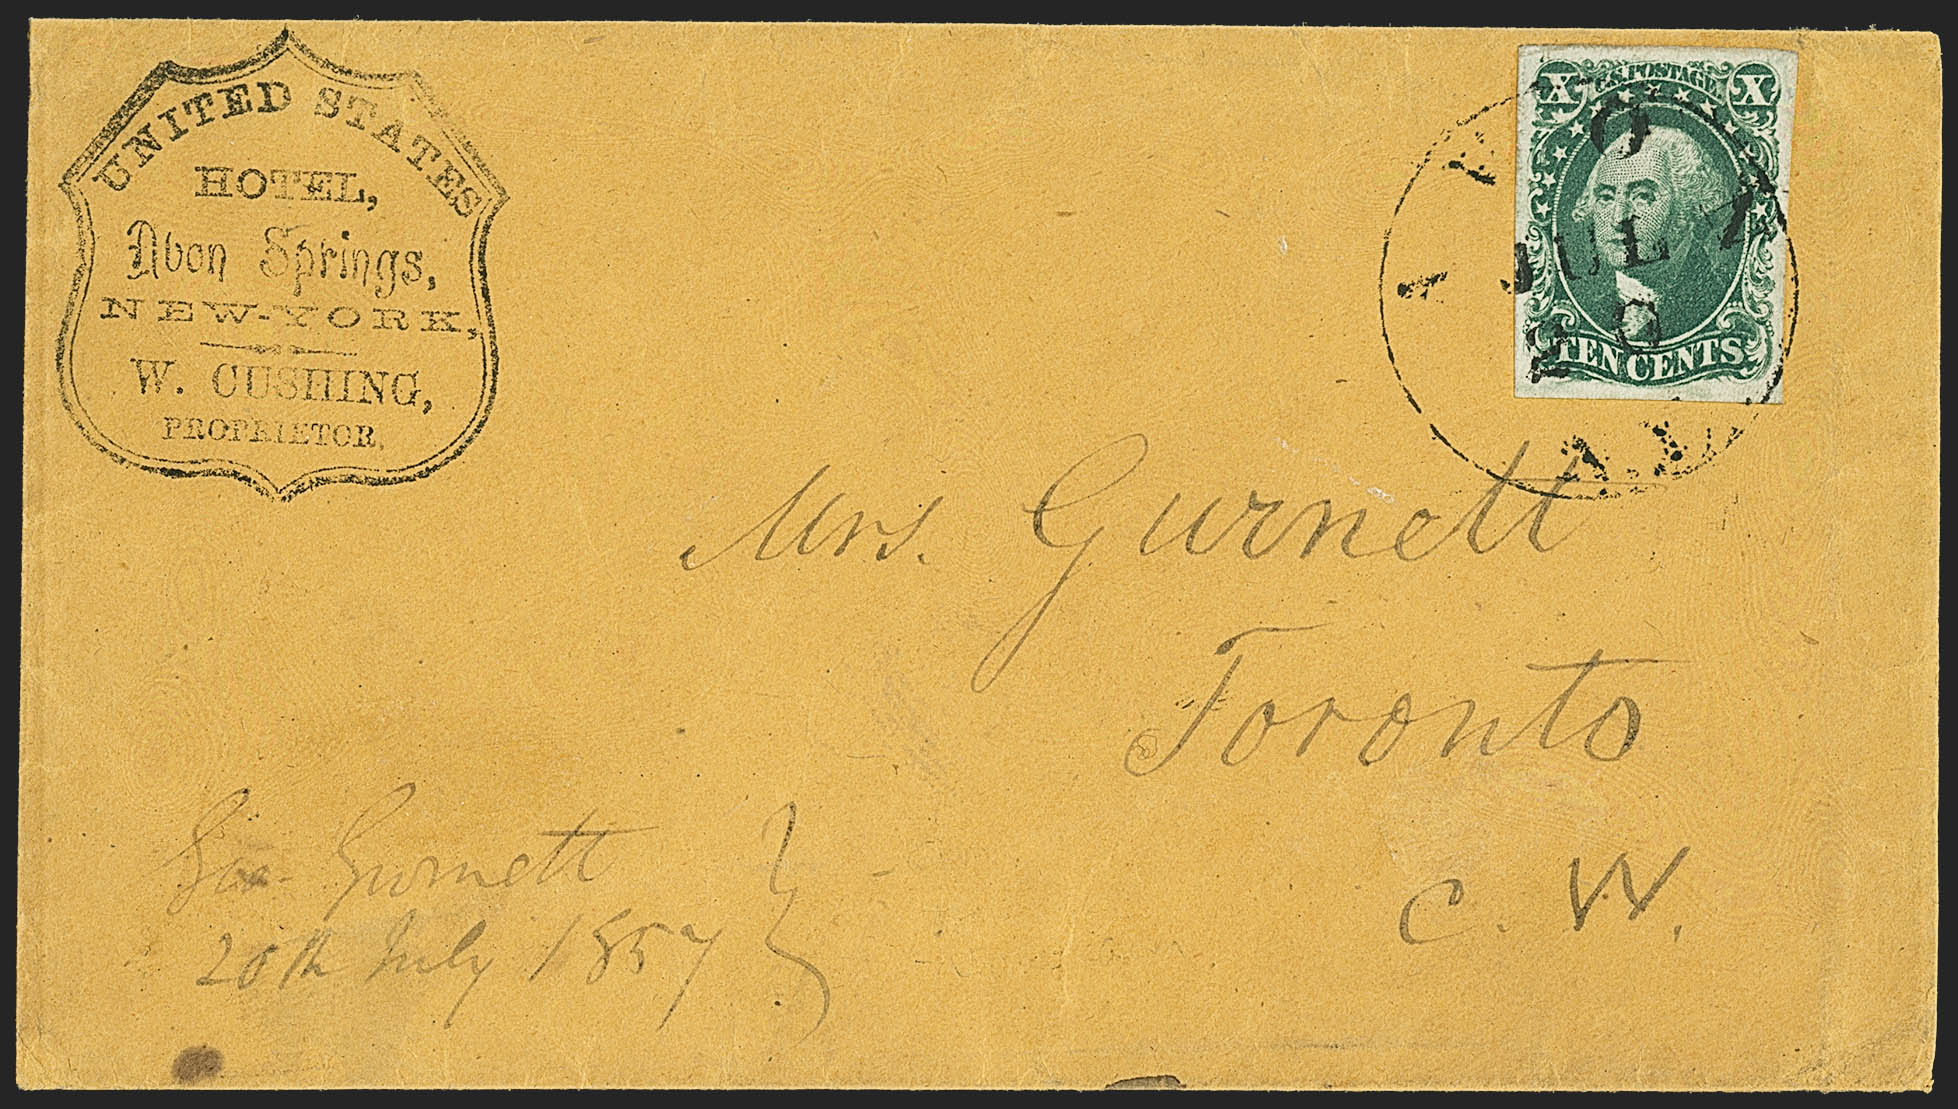 UNITED STATES
HOTEL,
Avon Springs,
NEW-YORK,
W. CUSHING,
PROPRIETOR.
U.S. POSTAGE
X X
TEN CENTS
JUL
20
Mrs. Gurnett
Toronto
C. W.
Geo. Gurnett
20th July 1857